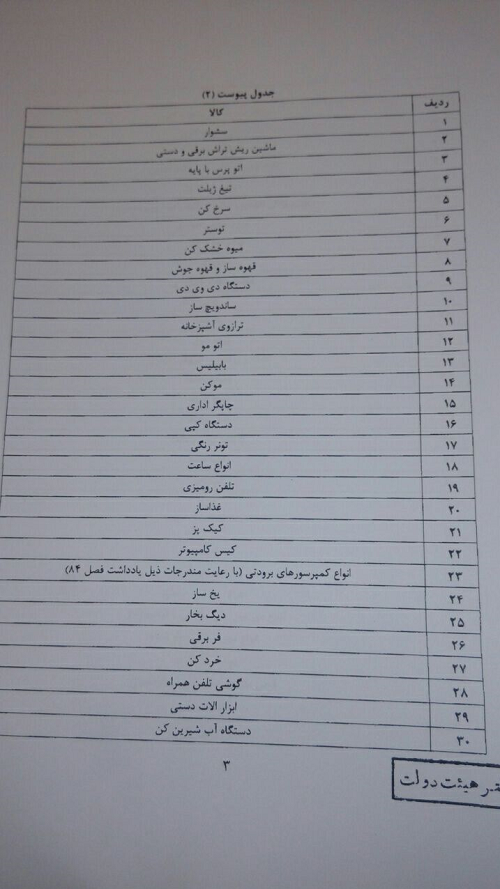 جدول پیوست (۲)
ردیف کالا
۱ سشوار
۲ ماشین ریش تراش برقی و دستی
۳ اتو پرس با پایه
۴ تیغ ژیلت
۵ سرخ کن
۶ توستر
۷ میوه خشک کن
۸ قهوه ساز و قهوه جوش
۹ دستگاه دی وی دی
۱۰ ساندویچ ساز
۱۱ ترازوی آشپزخانه
۱۲ اتو مو
۱۳ بابیلیس
۱۴ موکن
۱۵ چاپگر اداری
۱۶ دستگاه کپی
۱۷ تونر رنگی
۱۸ انواع ساعت
۱۹ تلفن رومیزی
۲۰ غذاساز
۲۱ کیک پز
۲۲ کیس کامپیوتر
۲۳ انواع کمپرسورهای برودتی (با رعایت مندرجات ذیل یادداشت فصل ۸۴)
۲۴ یخ ساز
۲۵ دیگ بخار
۲۶ فر برقی
۲۷ خرد کن
۲۸ گوشی تلفن همراه
۲۹ ابزار الات دستی
۳۰ دستگاه آب شیرین کن
۳
هیئت دولت